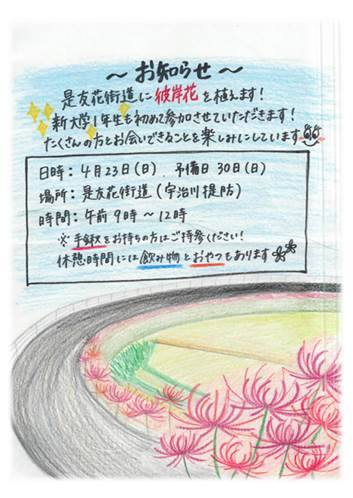 ～ お知らせ ～
是友花街道に彼岸花を植えます!
新大学1年生も初めて参加させていただきます!
たくさんの方とお会いできることを楽しみにしています
日時: 4月23日(日) 予備日 30日(日)
場所: 是友花街道(宇治川堤防)
時間: 午前9時～12時
※手鍬をお持ちの方はご持参ください!
休憩時間には飲み物とおやつもあります